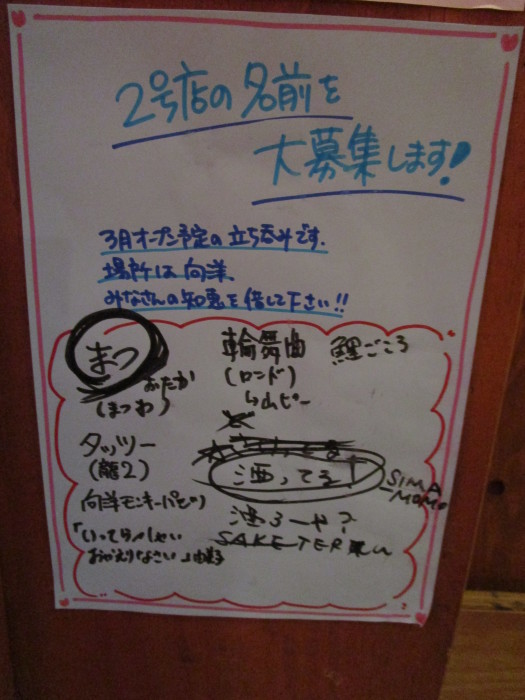 2号店の名前を
大募集します!
3月オープン予定の立ち呑みです.
場所は向洋、
みなさんの知恵を借して下さい!!
まつ
おたか
(まつわ)
輪舞曲
(ロンド)
↳山ピー
鯉ごころ
タッツー
(龍2)
向洋モンキーパピリ
「いってらっしゃい
おかえりなさい」
酒ってる↑
SIMA
MOMO
酒ろーや?
SAKETER